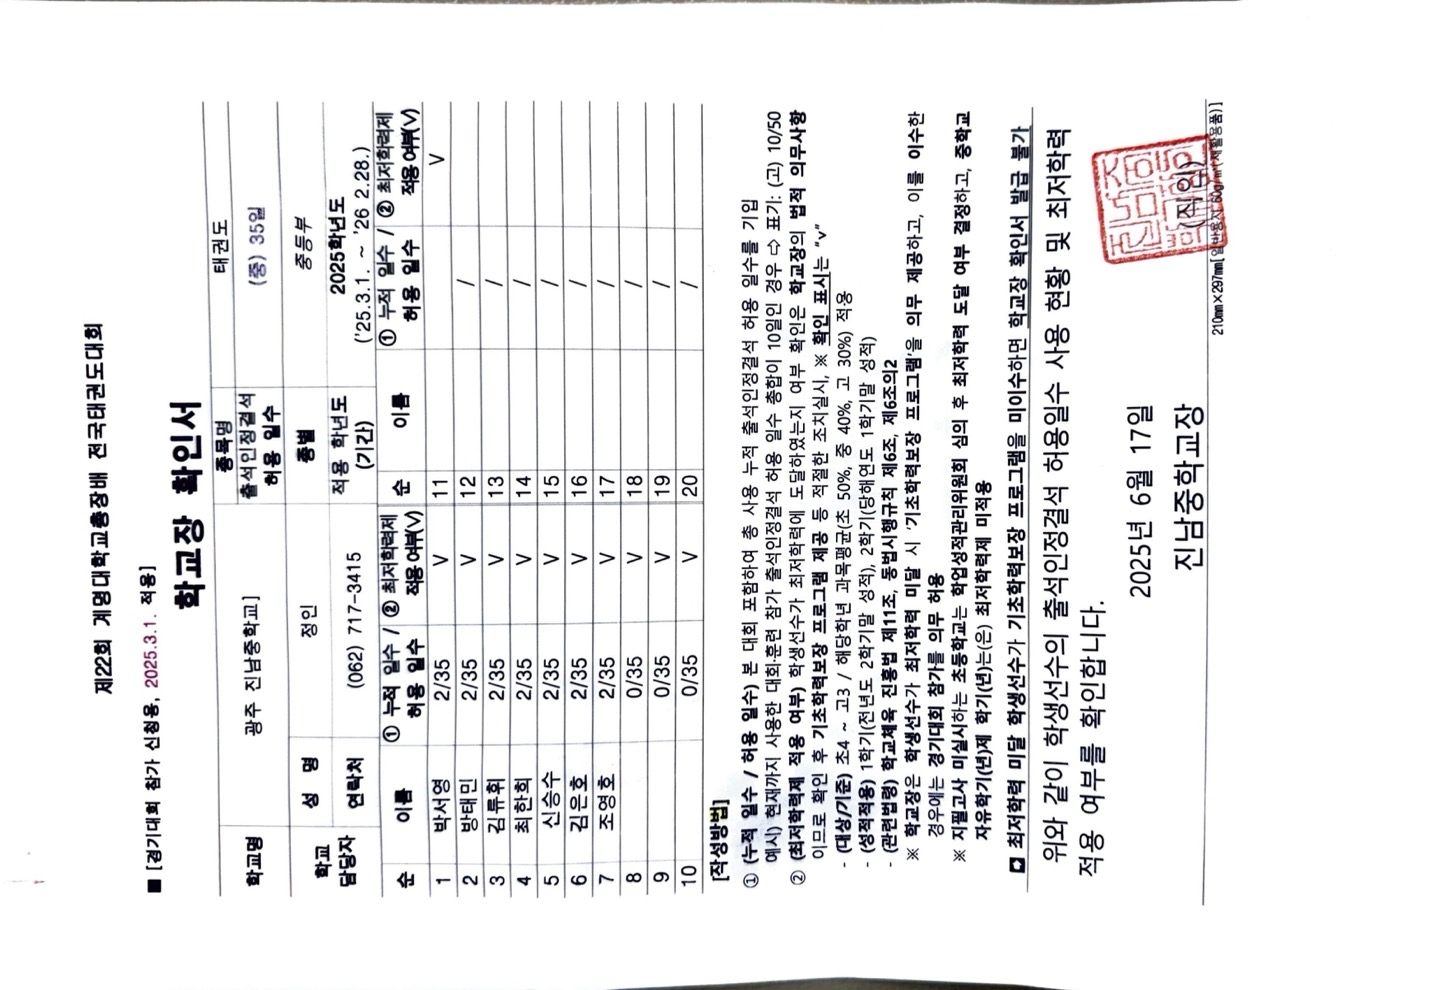 제22회 계명대학교총장배 전국태권도대회
■ [경기대회 참가 신청용, 2025.3.1. 적용]
학교장 확인서
학교명 광주 진남중학교] 종목명 태권도
출석인정결석 허용 일수 (중) 35일
학교 담당자 성 명 정인 종별 중등부
연락처 (062) 717-3415 적용 학년도 (기간) 2025학년도 ('25.3.1. ~ '26 2.28.)
순 이름 ① 누적 일수 / 허용 일수 ② 최저학력제 적용여부(V) 순 이름 ① 누적 일수 / 허용 일수 ② 최저학력제 적용여부(V)
1 박서영 2/35 V 11 V
2 방태민 2/35 V 12 /
3 김류휘 2/35 V 13 /
4 최한희 2/35 V 14 /
5 신승수 2/35 V 15 /
6 김은호 2/35 V 16 /
7 조영호 2/35 V 17 /
8 0/35 V 18 /
9 0/35 V 19 /
10 0/35 V 20 /
[작성방법]
① (누적 일수 / 허용 일수) 본 대회 포함하여 총 사용 누적 출석인정결석 허용 일수를 기입
예시) 현재까지 사용한 대회·훈련 참가 출석인정결석 허용 일수 총합이 10일인 경우 ⇨ 표기: (고) 10/50
② (최저학력제 적용 여부) 학생선수가 최저학력에 도달하였는지 여부 확인은 학교장의 법적 의무사항
이므로 확인 후 기초학력보장 프로그램 제공 등 적절한 조치실시, ※ 확인 표시는 "v"
- (대상/기준) 초4 ~ 고3 / 해당학년 과목평균(초 50%, 중 40%, 고 30%) 적용
- (성적적용) 1학기(전년도 2학기말 성적), 2학기(당해연도 1학기말 성적)
- (관련법령) 학교체육 진흥법 제11조, 동법시행규칙 제6조, 제6조의2
※ 학교장은 학생선수가 최저학력 미달 시 '기초학력보장 프로그램'을 의무 제공하고, 이를 이수한
경우에는 경기대회 참가를 의무 허용
※ 지필고사 미실시하는 초등학교는 학업성적관리위원회 심의 후 최저학력 도달 여부 결정하고, 중학교
자유학기(년)제 학기(년)는(은) 최저학력제 미적용
◘ 최저학력 미달 학생선수가 기초학력보장 프로그램을 미이수하면 학교장 확인서 발급 불가
위와 같이 학생선수의 출석인정결석 허용일수 사용 현황 및 최저학력
적용 여부를 확인합니다.
2025년 6월 17일
진남중학교장 (직인)
210mm×297mm[일반용지 60g/㎡(재활용품)]